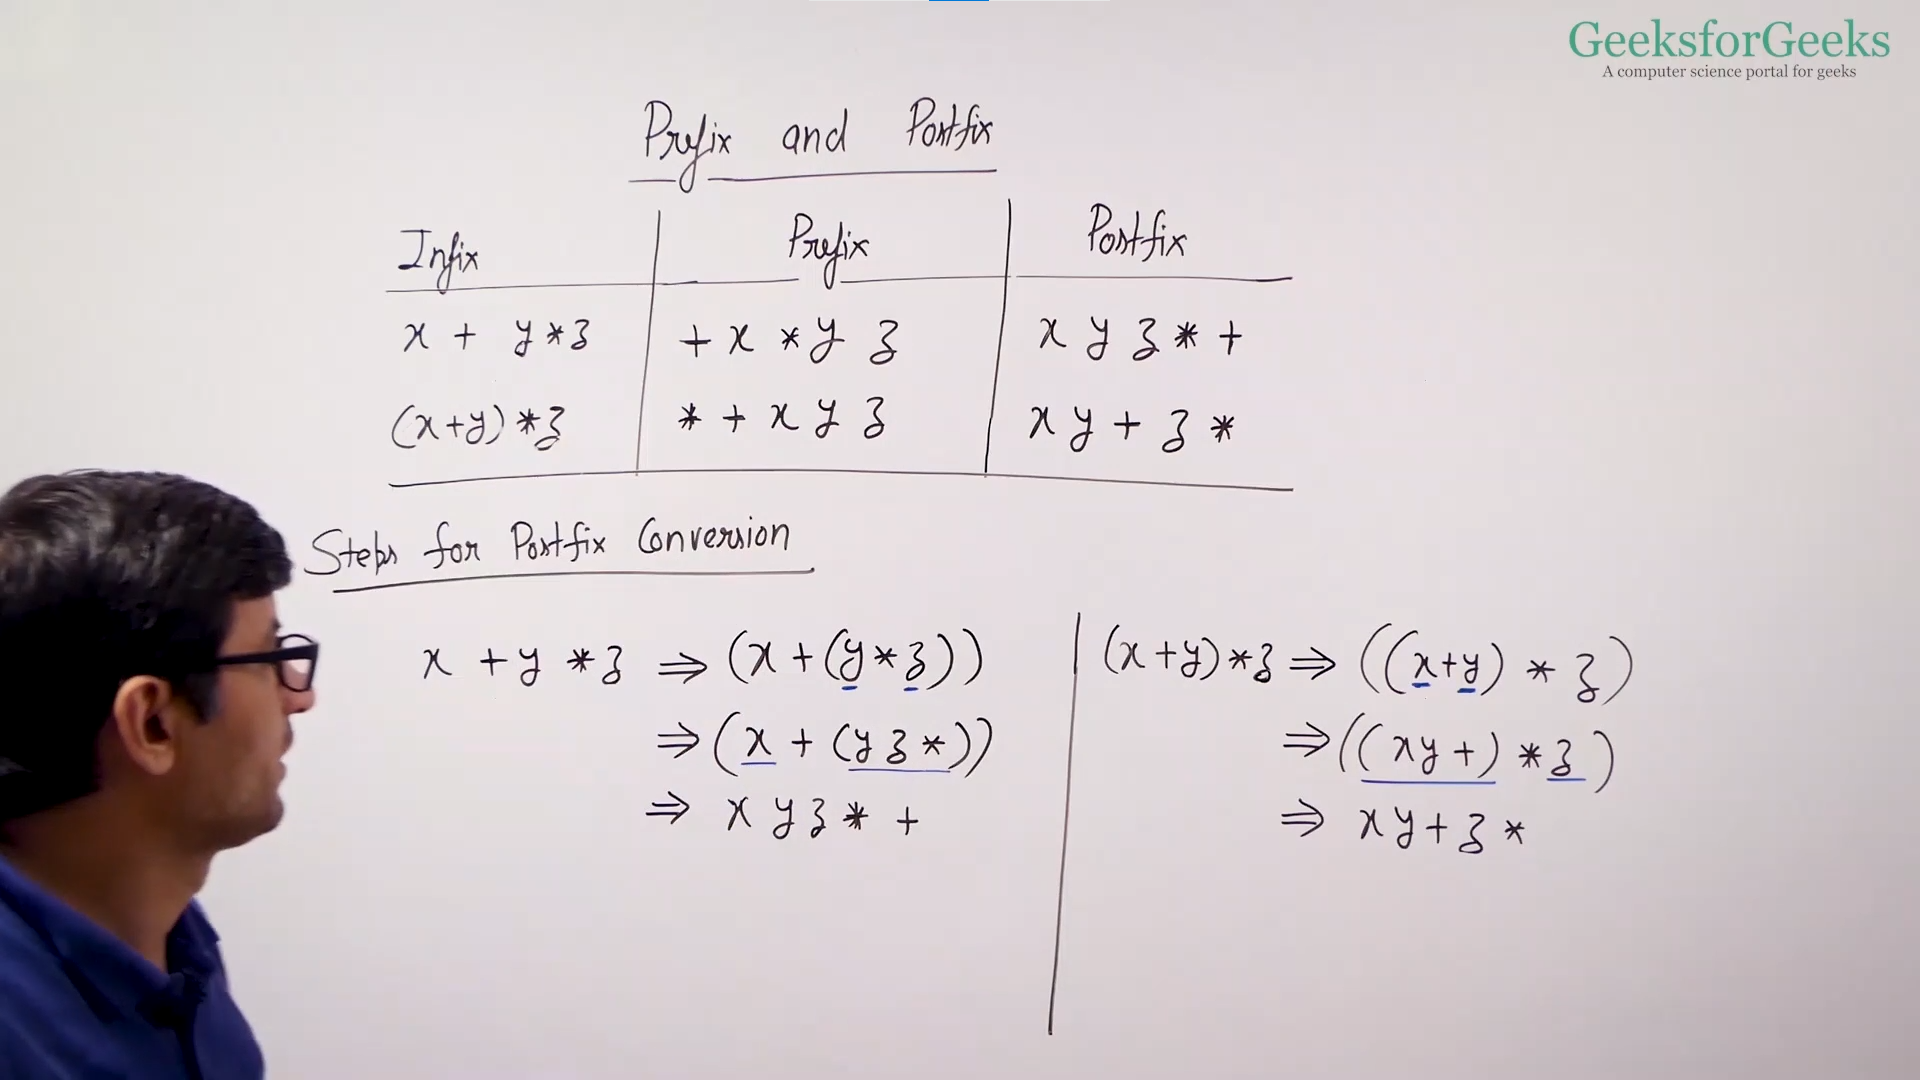 GeeksforGeeks
A computer science portal for geeks
Prefix and Postfix
Infix Prefix Postfix
x + y * z + x * y z x y z * +
(x+y) * z * + x y z x y + z *
Steps for Postfix Conversion
x + y * z ⇒ (x + (y * z))
⇒ (x + (y z *))
⇒ x y z * +
(x+y) * z ⇒ ((x+y) * z)
⇒ ((xy+) * z)
⇒ xy+z *